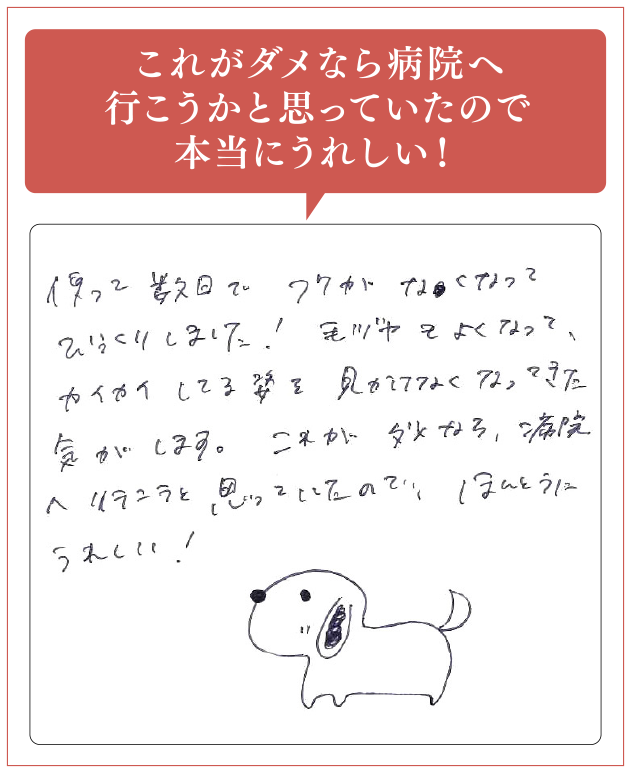 これがダメなら病院へ
行こうかと思っていたので
本当にうれしい！
使って数日でフケがなくなって
びっくりしました！毛ヅヤもよくなって、
カイカイしてる姿を見かけなくなってきた
気がします。これがダメなら、病院
へ行こうと思っていたので、ほんとうに
うれしい！